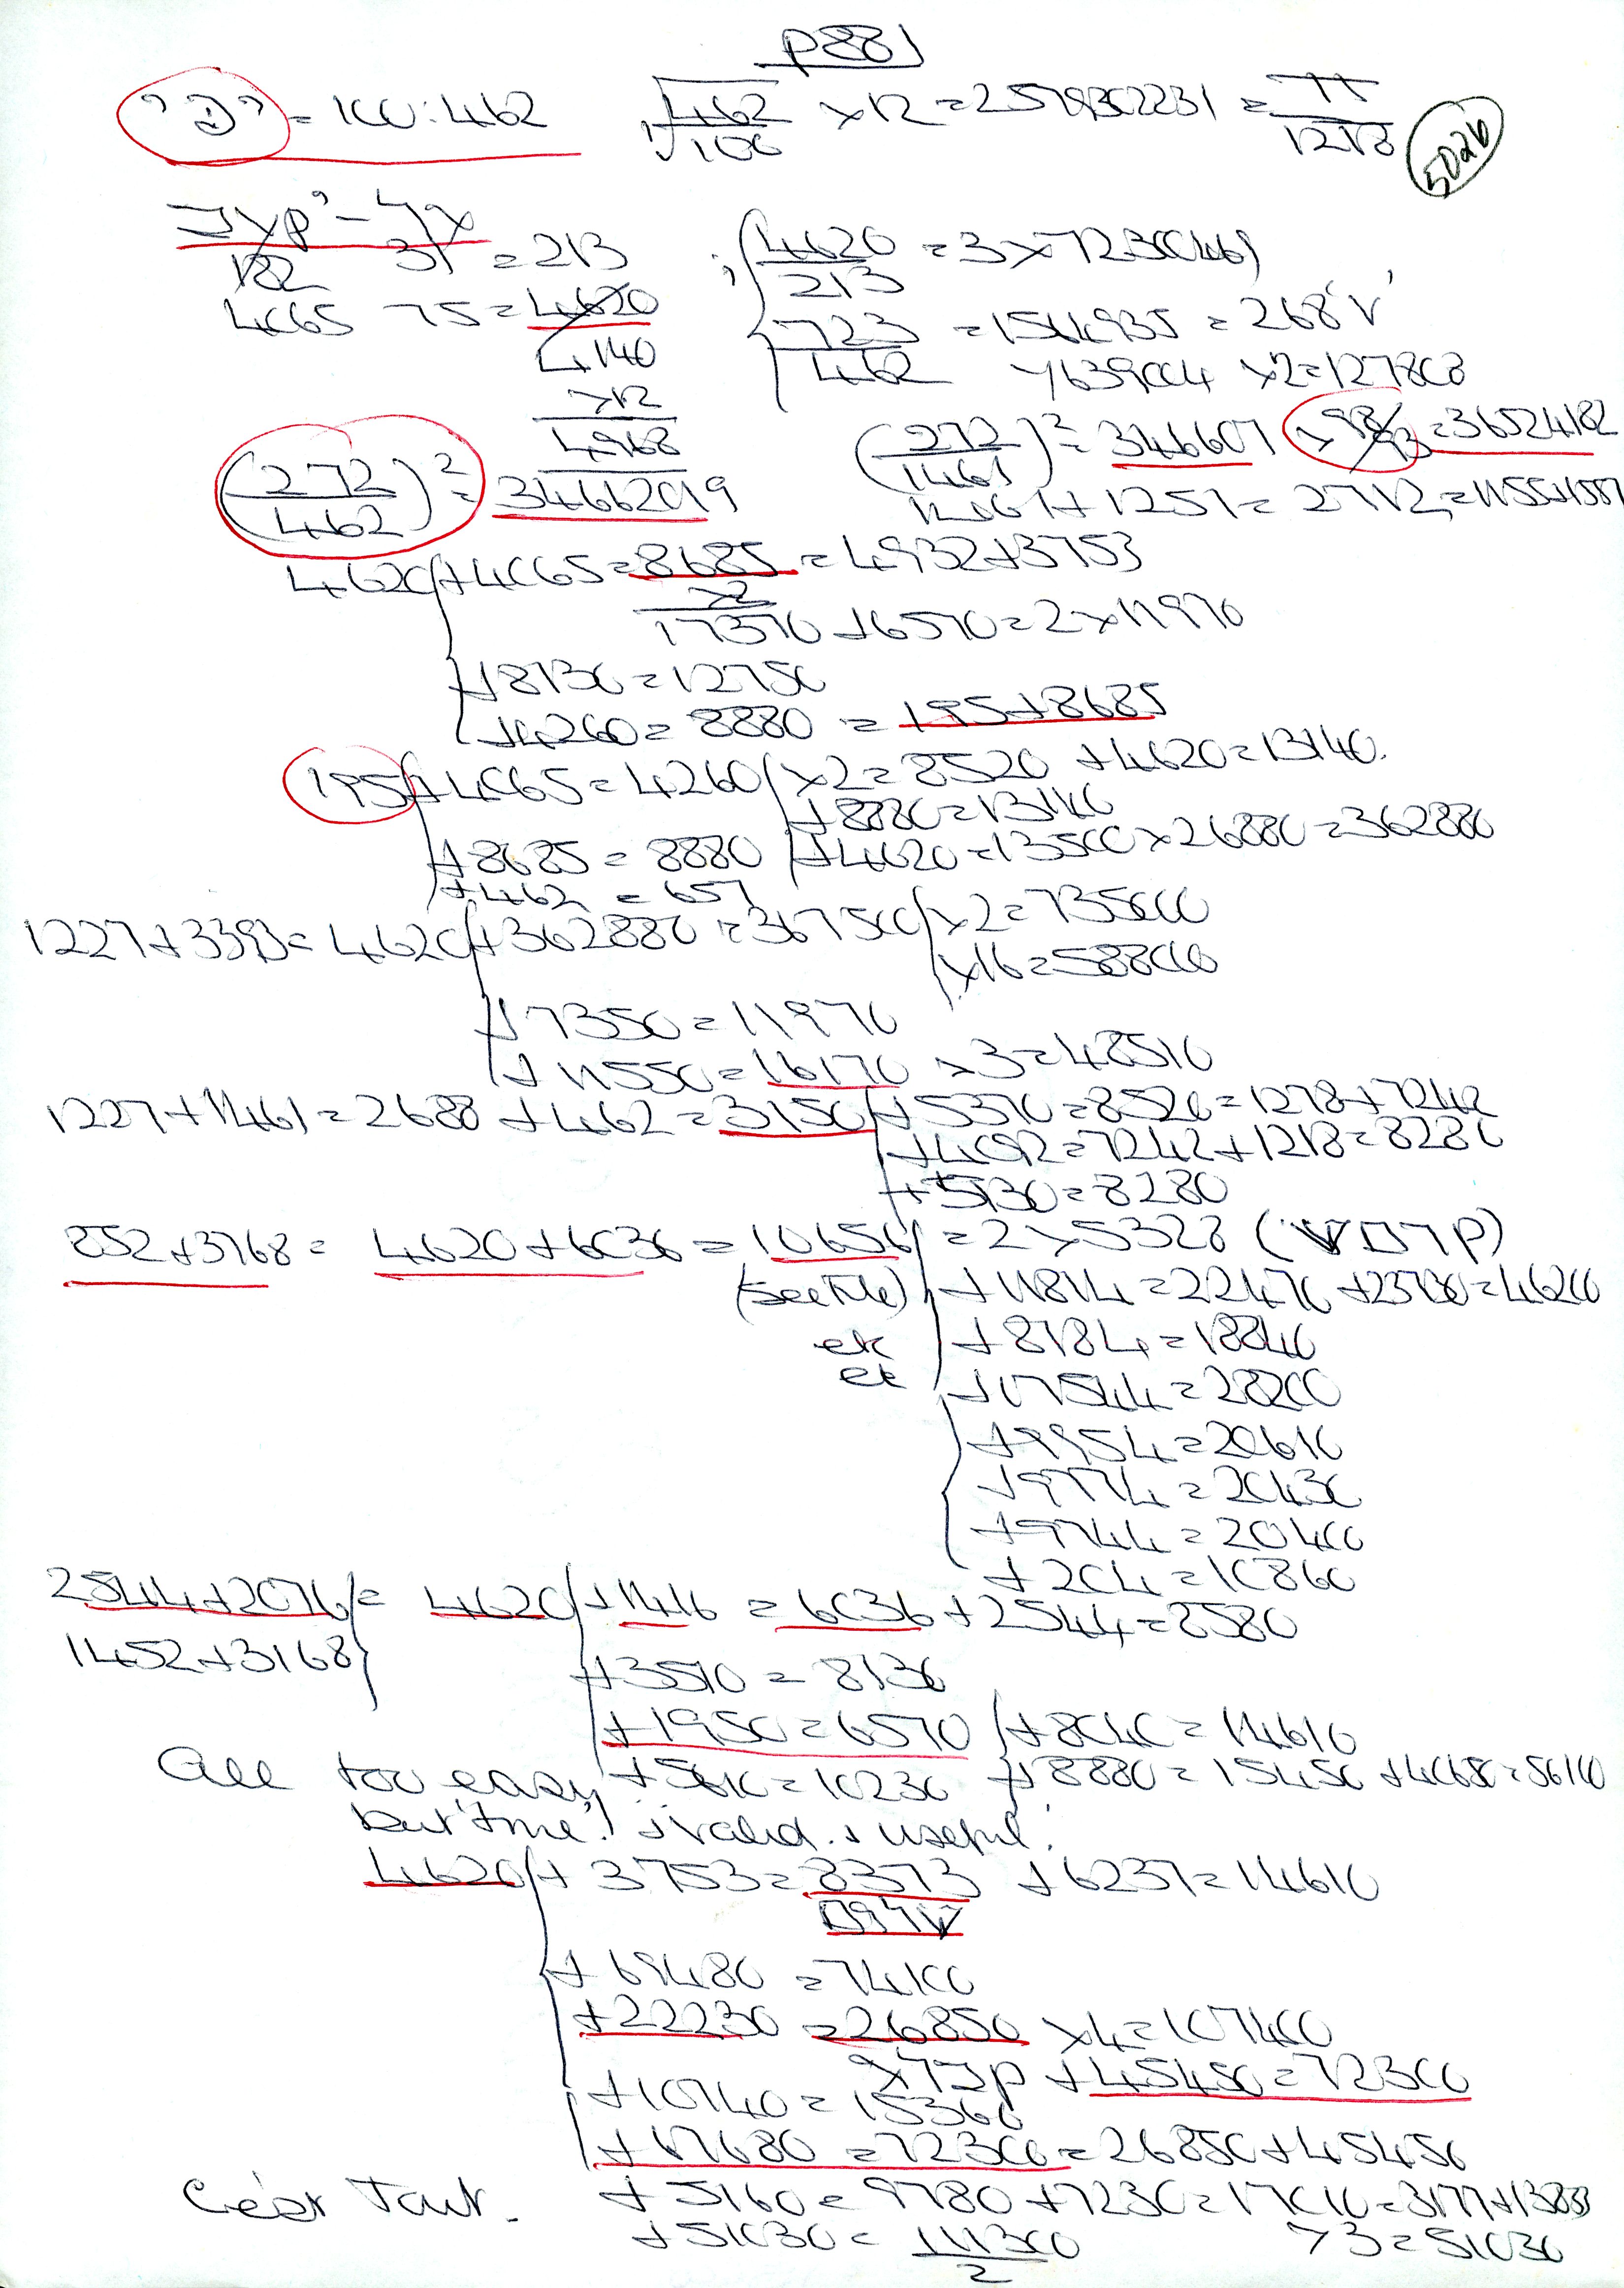 P881
"D" = 100:462 √462/100 × 12 = 2579302231 = π/1218
5026
182 31 = 213 ; 4620/213 = 3 × 7230046
4065 75 = 4620 723/462 = 1564935 = 268 'V'
4140 √639004 × 2 = 127808
×12
4968
(272/462)² = 34662019 (272/1461)² = 346607 × 98/93 = 36524182
1461 + 1251 = 2712 = 1155+1557
4620 + 4065 = 8685 = 4932+3753
×2
17370 + 6570 = 2×11970
+8130 = 12750
+4260 = 8880 = 195+8685
195 + 4065 = 4260 ×2 = 8520 +4620 = 13140.
+8880 = 13140
+8685 = 8880 +4620 = 13500 × 26880 = 362880
+462 = 657
1227+3393 = 4620 +362880 = 367500 ×2 = 735000
×16 = 588000
+7350 = 11970
+11550 = 16170 ×3 = 48510
1227+1461 = 2688 +462 = 3150 +5370 = 8520 = 1278+7242
+4092 = 7242+1218 = 8280
+5130 = 8280
852+3768 = 4620+6036 = 10656 = 2×5328
(see Title) +11814 = 22470 +23730 = 46200
etc +8184 = 18840
etc +17544 = 28200
+9954 = 20610
+9774 = 20430
+9744 = 20400
+204 = 10860
2544+2076 = 4620 +1416 = 6036+2544 = 8580
1452+3168
+3510 = 8130
+1950 = 6570 +8040 = 14610
All too easy +5610 = 10230 +8880 = 15450 +40650 = 56100
but 'true'! + valid. + useful!
4620 + 3753 = 8373 + 6237 = 14610
+ 69480 = 74100
+22230 = 26850 ×4 = 107400
+45450 = 72300
+10740 = 15360
+67680 = 72300 = 26850+45450
C'est Tout. +5160 = 9780 +7230 = 17010 = 3177+13833
+51030 = 111300/2 ×3 = 51030